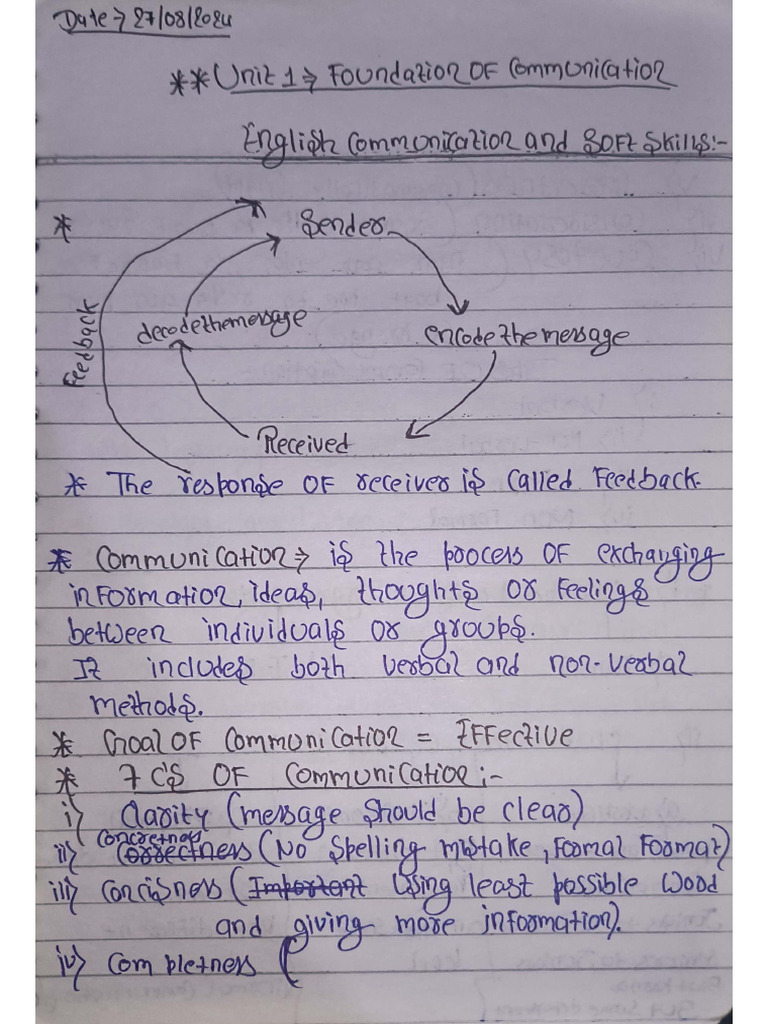 Date → 27/08/2024
** Unit 1 → Foundation of Communication
English Communication and Soft Skills:-
* Sender
Feedback
decode the message
encode the message
Received
* The response of receiver is called Feedback.
* Communication → is the process of exchanging
information, ideas, thoughts or feelings
between individuals or groups.
It includes both verbal and non-verbal
methods.
* Goal of Communication = Effective
* 7 C's of Communication :-
i) Clarity (message should be clear)
concretness
ii) Correctness (No spelling mistake, Formal Format)
iii) Concisness (Important Using least possible word
and giving more information).
iv) Completness (